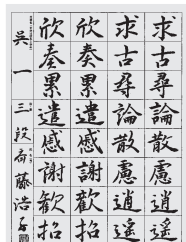 求古尋論散慮逍遥
求古尋論散慮逍遥
欣奏累遣慼謝歡招
欣奏累遣慼謝歡招
呉 一 三段 斎藤浩